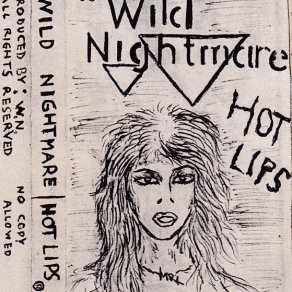 "Wild
Nightmare
HOT
LIPS
WILD NIGHTMARE | HOT LIPS ®
PRODUCED BY: W.N.
ALL RIGHTS RESERVED
NO COPY
ALLOWED